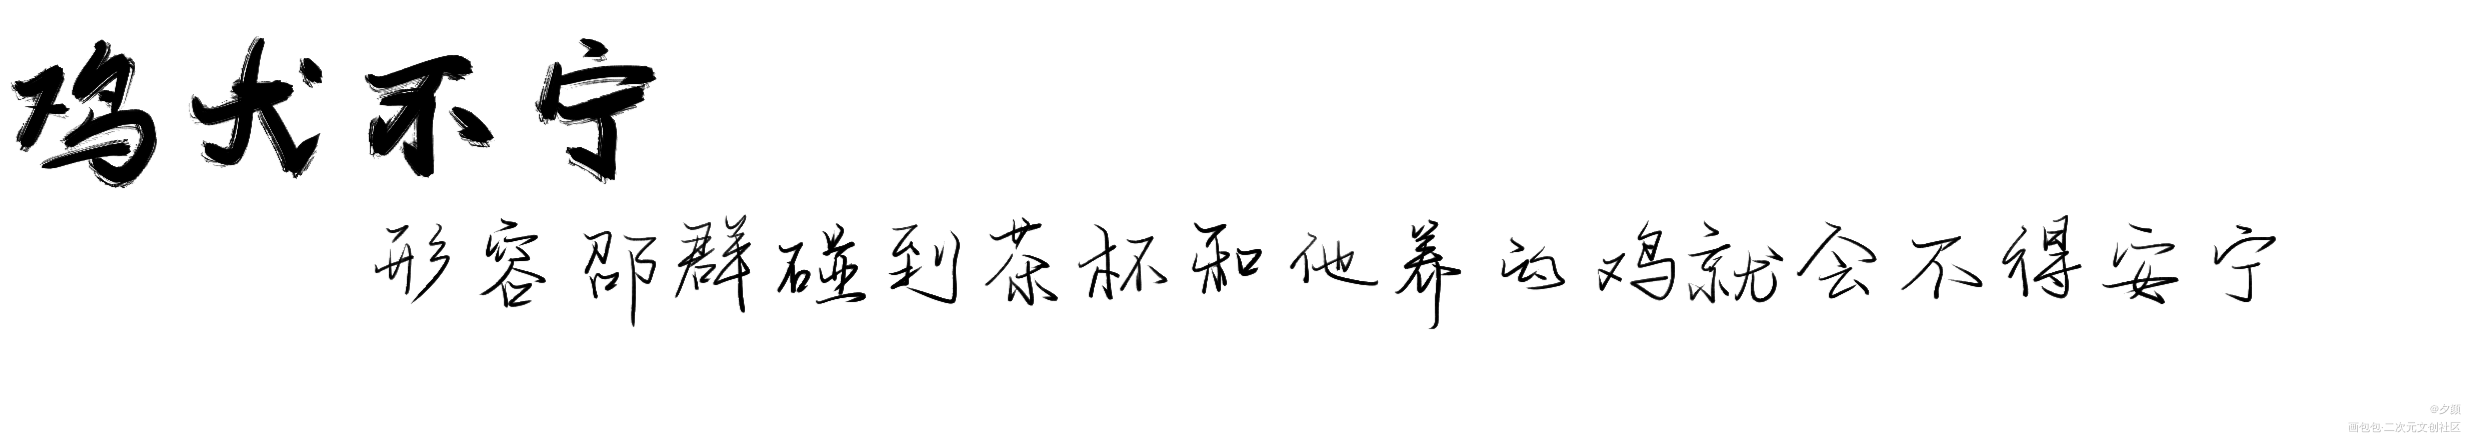 鸡犬不宁
形容邵群碰到茶杯和他养的鸡就会不得安宁
@夕颜
画包包·二次元文创社区